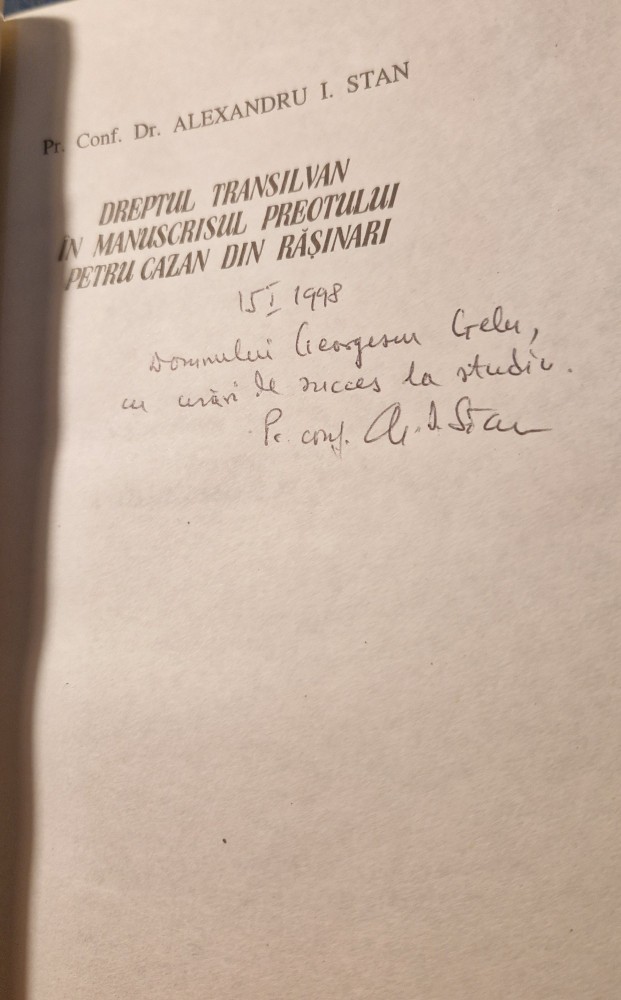 Pr. Conf. Dr. ALEXANDRU I. STAN
DREPTUL TRANSILVAN
ÎN MANUSCRISUL PREOTULUI
PETRU CAZAN DIN RĂȘINARI
15 I 1998
Domnului Georgescu Gelu,
cu urări de succes la studiu.
Pr. conf. Al. I. Stan